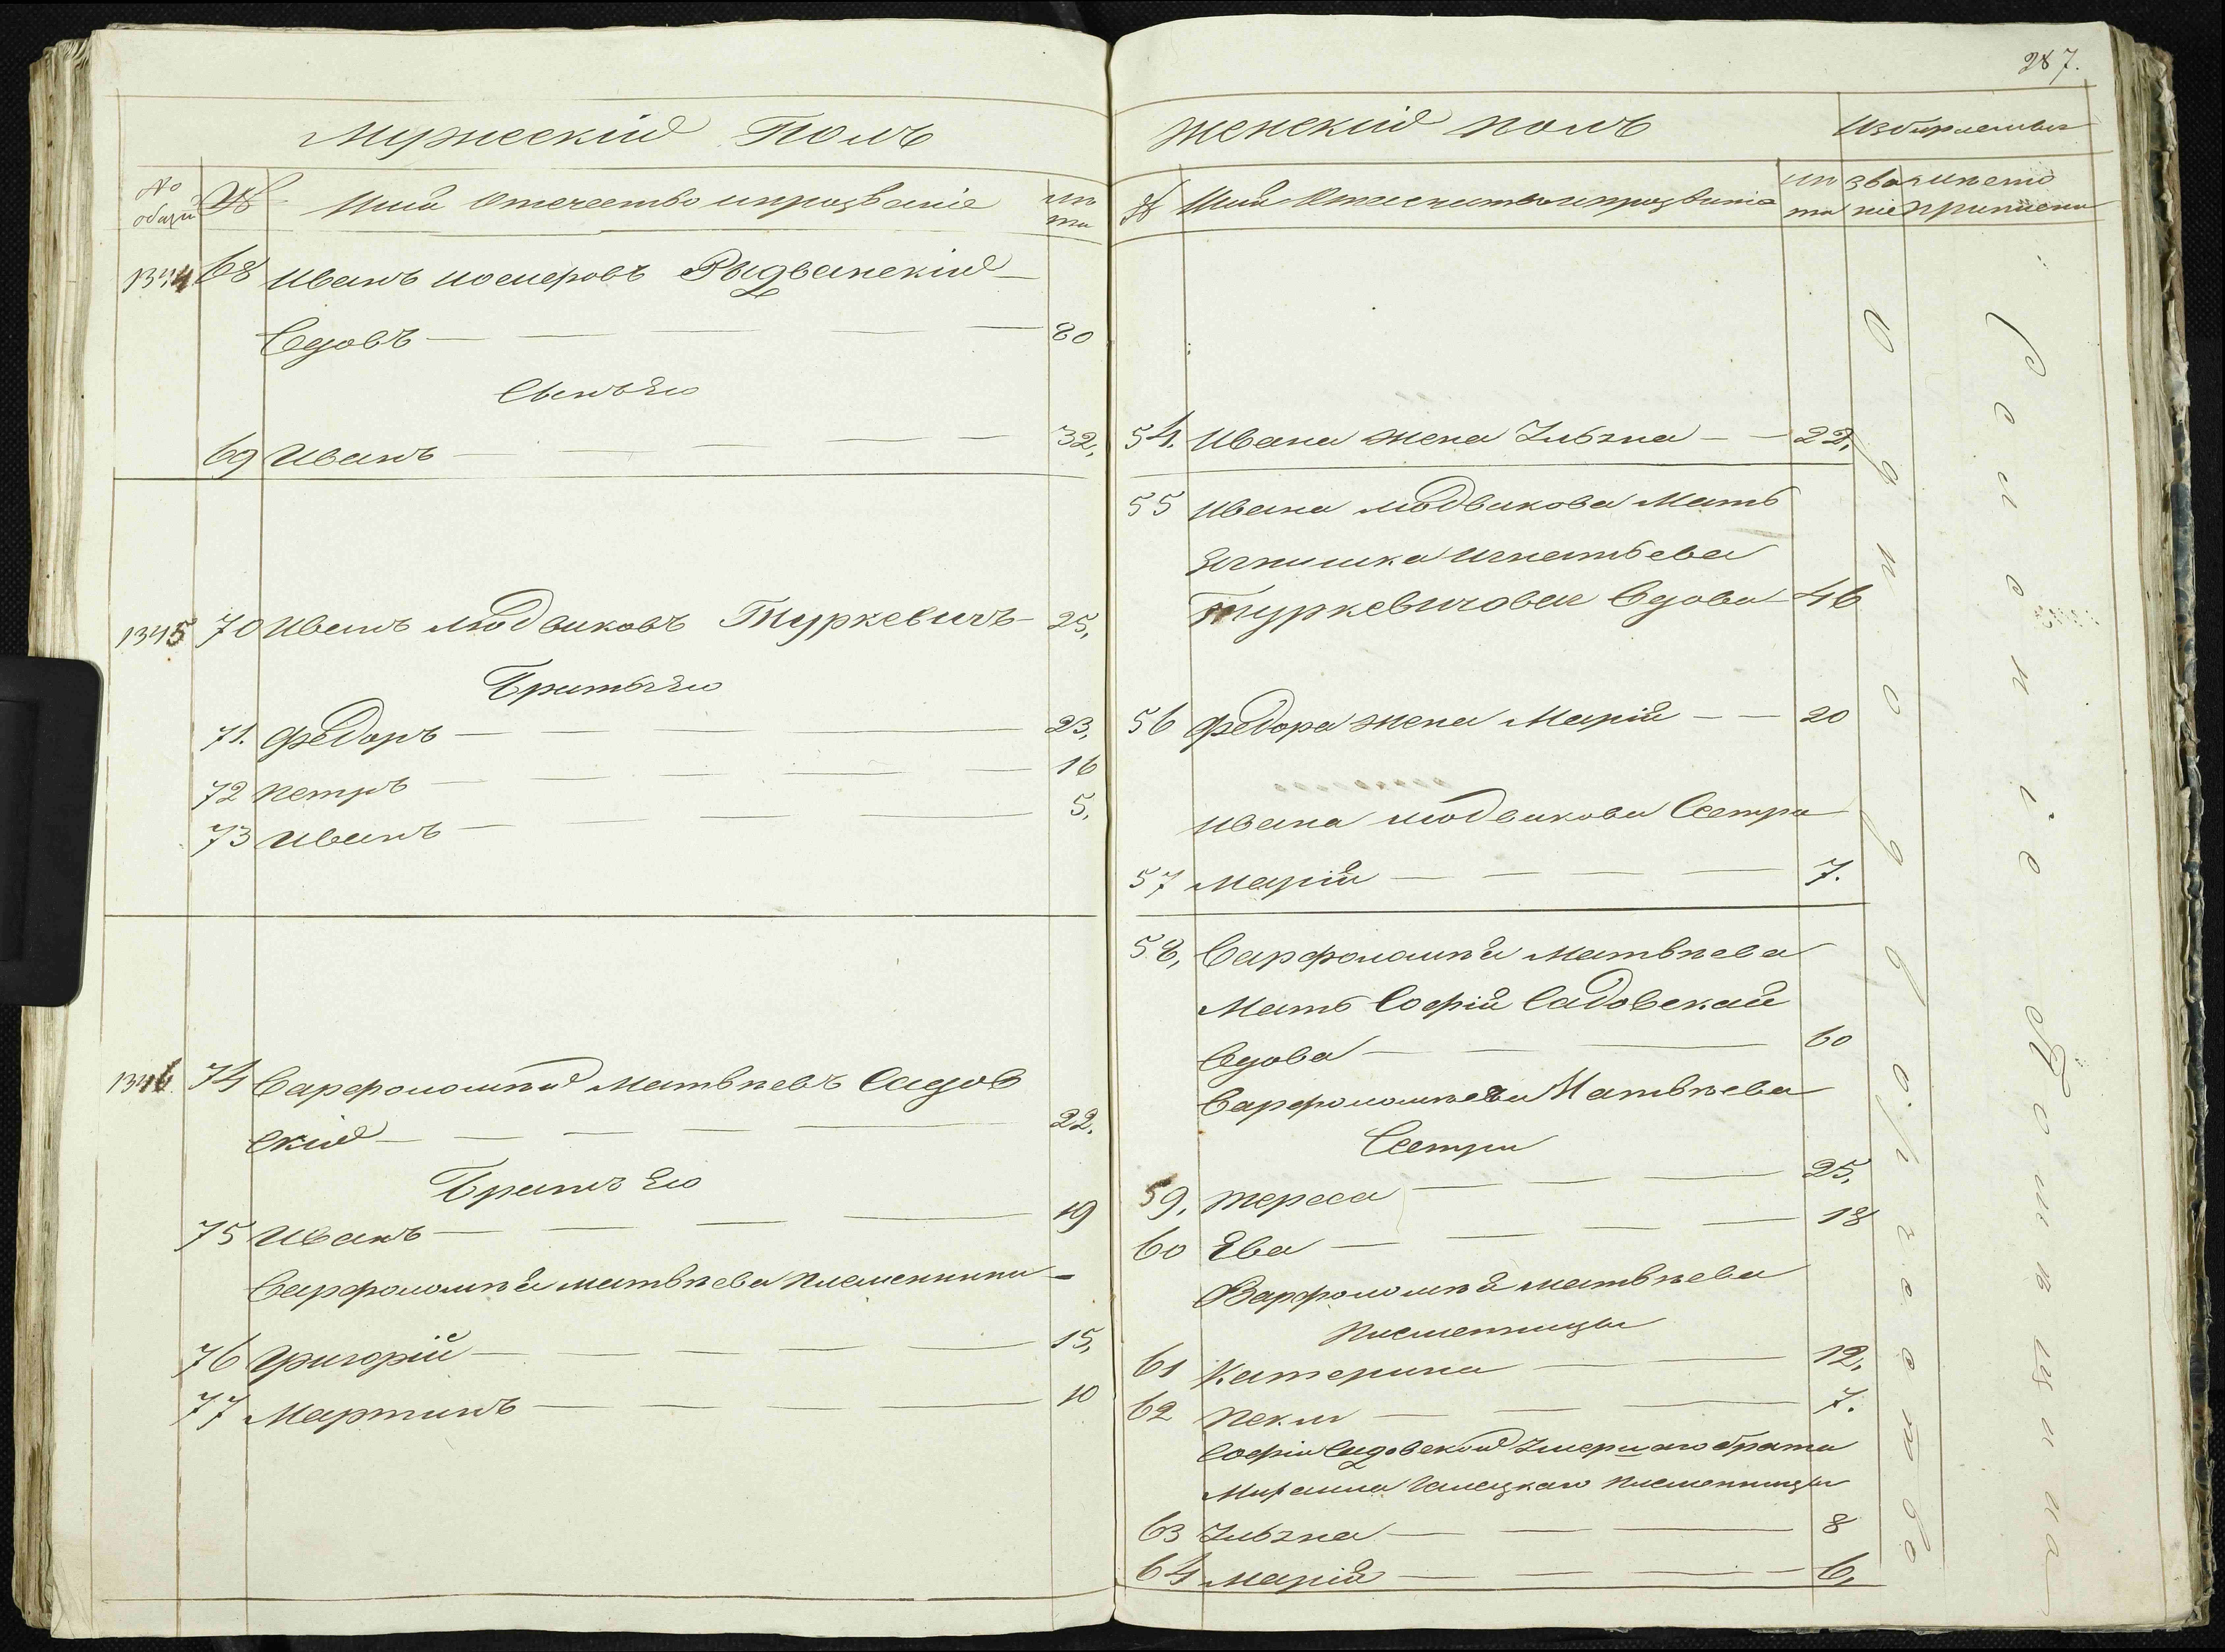 287.
Мужескій Полъ
№ общій
№
Имя Отечество и прозваніе
лѣта
1344 68 Иванъ Иосифовъ Рыдванскій
Вдовъ — 80
Сынъ Его
69 Иванъ — 32,
1345 70 Иванъ Людвиковъ Туркевичъ — 25,
Братья Его
71. Федоръ — 23,
72 Петръ — 16
73 Иванъ — 5,
1346 74 Варфоломѣй Матвѣевъ Садов
скій — 22.
Братъ Его
75 Иванъ — 19
Варфоломѣя Матвѣева племянники
76 Григорій — 15,
77 Мартинъ — 10
Женскій полъ
Избираемыя
№
Имя Отечество и прозваніе
лѣта
званіе
54. Ивана жена Эльжна — 22,
55 Ивана Людвикова Мать
Ягнишка Игнатьева
Туркевичовая Вдова 46
56 Федора жена Марія — 20
Ивана Людвикова Сестра
57 Марія — 7.
58, Варфоломѣя Матвѣева
Мать Софія Садовская
Вдова — 60
Варфоломѣя Матвѣева
Сестры
59, Тереса — 25,
60 Ева — 18
Варфоломѣя Матвѣева
Племянницы
61 Катерина — 12,
62 Текля — 7.
Софіи Садовской Умершаго брата
Михаила племянницы
63 Эльжна — 8
64 Марія — 6,
Однодворчество
Селеніе